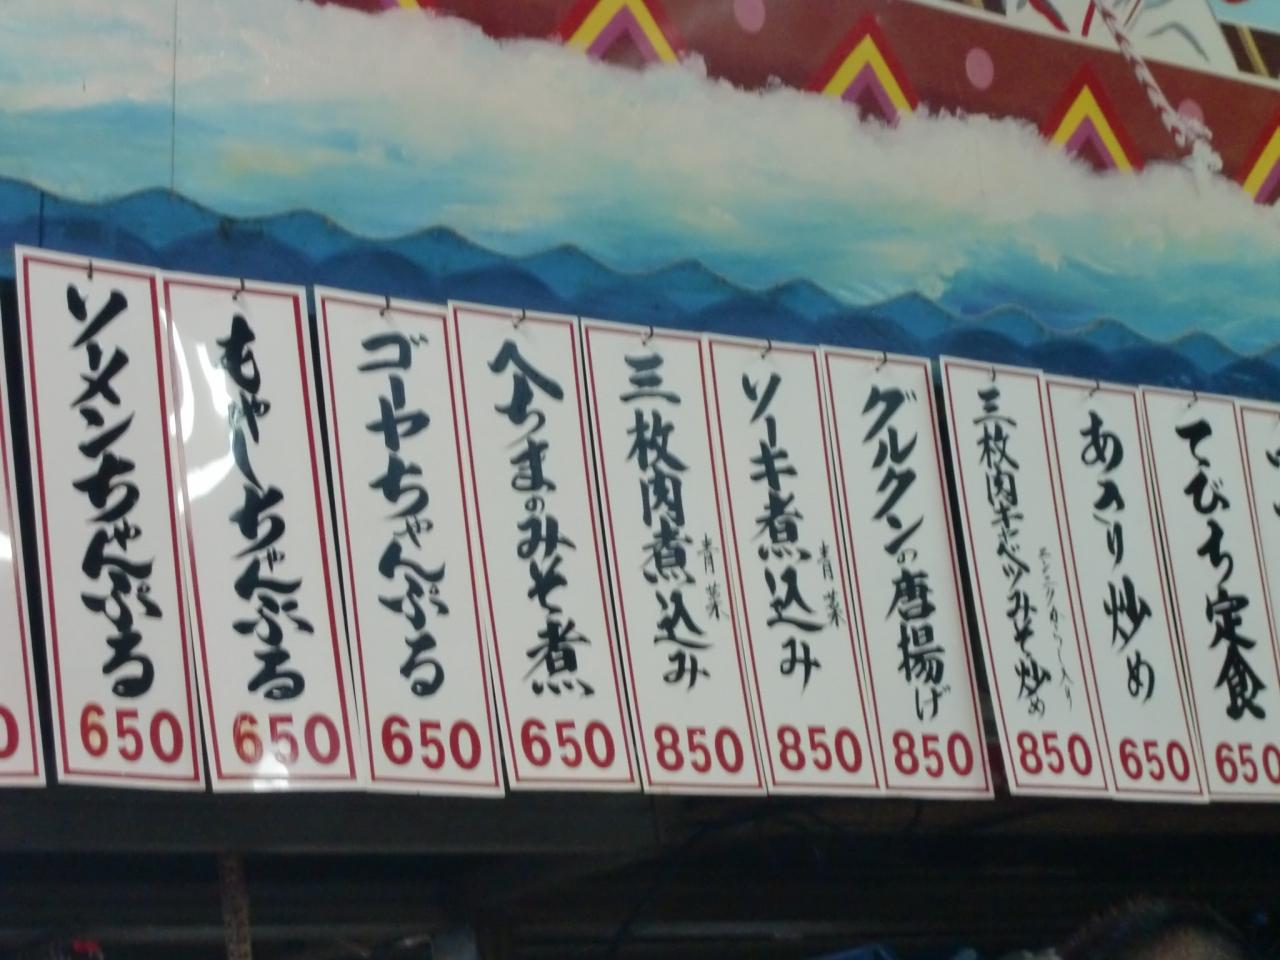 ソーメンちゃんぷる
650
もやしちゃんぷる
650
ゴーヤちゃんぷる
650
へちまのみそ煮
650
三枚肉煮込み
青菜
850
ソーキ煮込み
青菜
850
グルクンの唐揚げ
850
三枚肉キャベツみそ炒め
ニンニクからし入り
850
あさり炒め
650
てびち定食
650